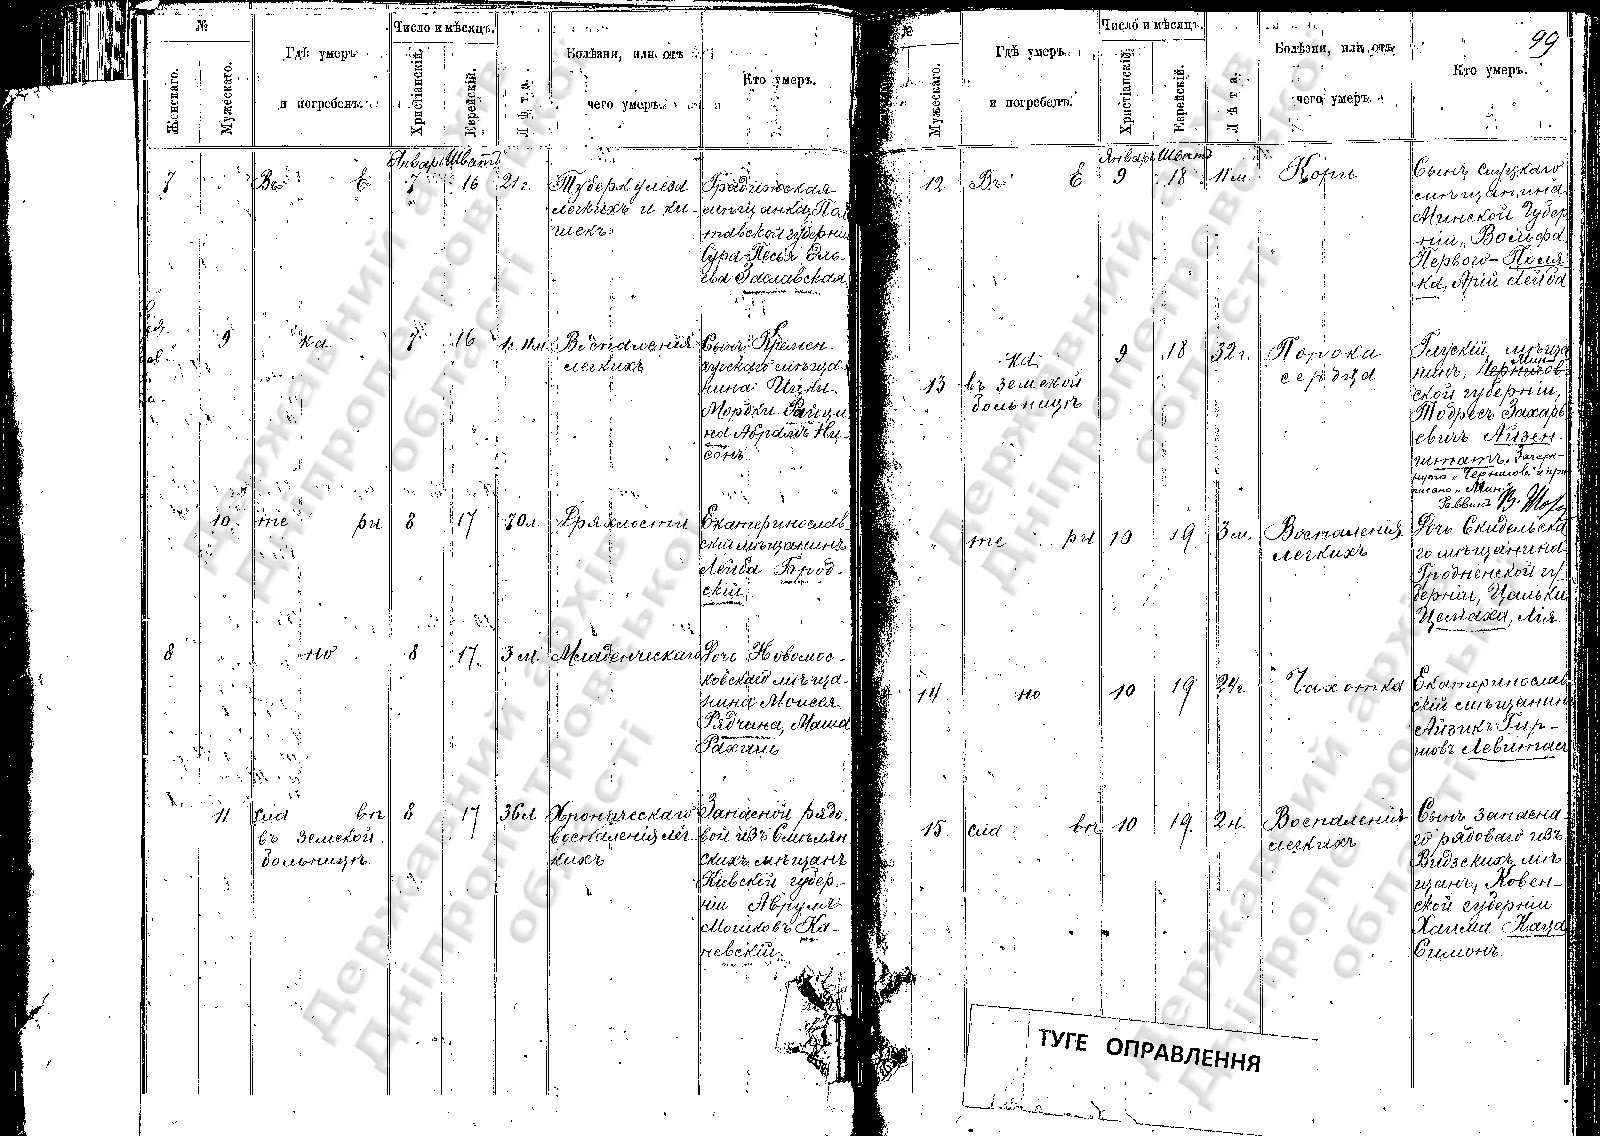 №
Число и мѣсяцъ.
Женскаго.
Мужескаго.
Гдѣ умеръ
и погребенъ.
Христіанскій.
Еврейскій.
Лѣта.
Болѣзни, или отъ
чего умеръ.
Кто умеръ.
Январь Шватъ
7
Въ Е
7
16
21 г.
Туберкулеза
легкихъ и ки-
шекъ
Градижская
мѣщанка, Пол
тавской губерніи
Сура-Песья Ель-
ева Заславская
9
ка
7
16
1 г. 11 м.
Воспаленія
легкихъ
Сынъ Кремен-
чугскаго мѣща-
нина Ицки-
Мордки Райци
на Абрамъ Ни-
сонъ
10
те ри
8
17
70 л.
Дряхлости
Екатеринослав
скій мѣщанинъ
Лейба Брод-
скій
8
но
8
17.
3 м.
Младенческаго
Дочь Новомос-
ковскаго мѣща-
нина Моисея
Рядчина, Маша
Рахиль
11
сла вѣ
въ земской
больницѣ.
8
17
36 л
Хроническаго
воспаленія лег-
кихъ
Запасной рядо-
вой изъ Смѣлян
скихъ мѣщанъ
Кіевской губер-
ніи Аврумъ
Мошковъ Ка-
невскій
99
№
Число и мѣсяцъ.
Мужескаго.
Гдѣ умеръ
и погребенъ.
Христіанскій.
Еврейскій.
Лѣта.
Болѣзни, или отъ
чего умеръ.
Кто умеръ.
Январь Шватъ
12
Въ Е
9
18
11 м.
Кори
Сынъ слуцкаго
мѣщанина
Минской Губер
ніи, Вольфа
Первого-Поля-
ка, Арій Лейба
13
ка
въ земской
больницѣ
9
18
32 г.
Порока
сердца
Глускій мѣща
нинъ, Чернигов
Мин
ской губерніи,
Тодресъ Захарь
евичъ Айзен-
штатъ. Зачерк-
нуто "Чернигов" и при
писано "Мин"
Раввинъ
те ри
10
19
3 м.
Воспаленія
легкихъ
Дочь Скидельска
го мѣщанина
Гродненской гу
берніи, Цальки
Цемаха, Лія
14
но
10
19
24 г.
Чахотка
Екатеринослав
скій мѣщанинъ
Айзикъ Гир-
шовъ Левитас
15
сла вѣ
10
19
2 н.
Воспаленія
легкихъ
Сынъ запасна-
го рядоваго изъ
Видзскихъ мѣ
щанъ, Ковен-
ской губерніи
Хаима Каца
Симонъ
ТУГЕ ОПРАВЛЕННЯ
Державний архів
Дніпропетровської
області